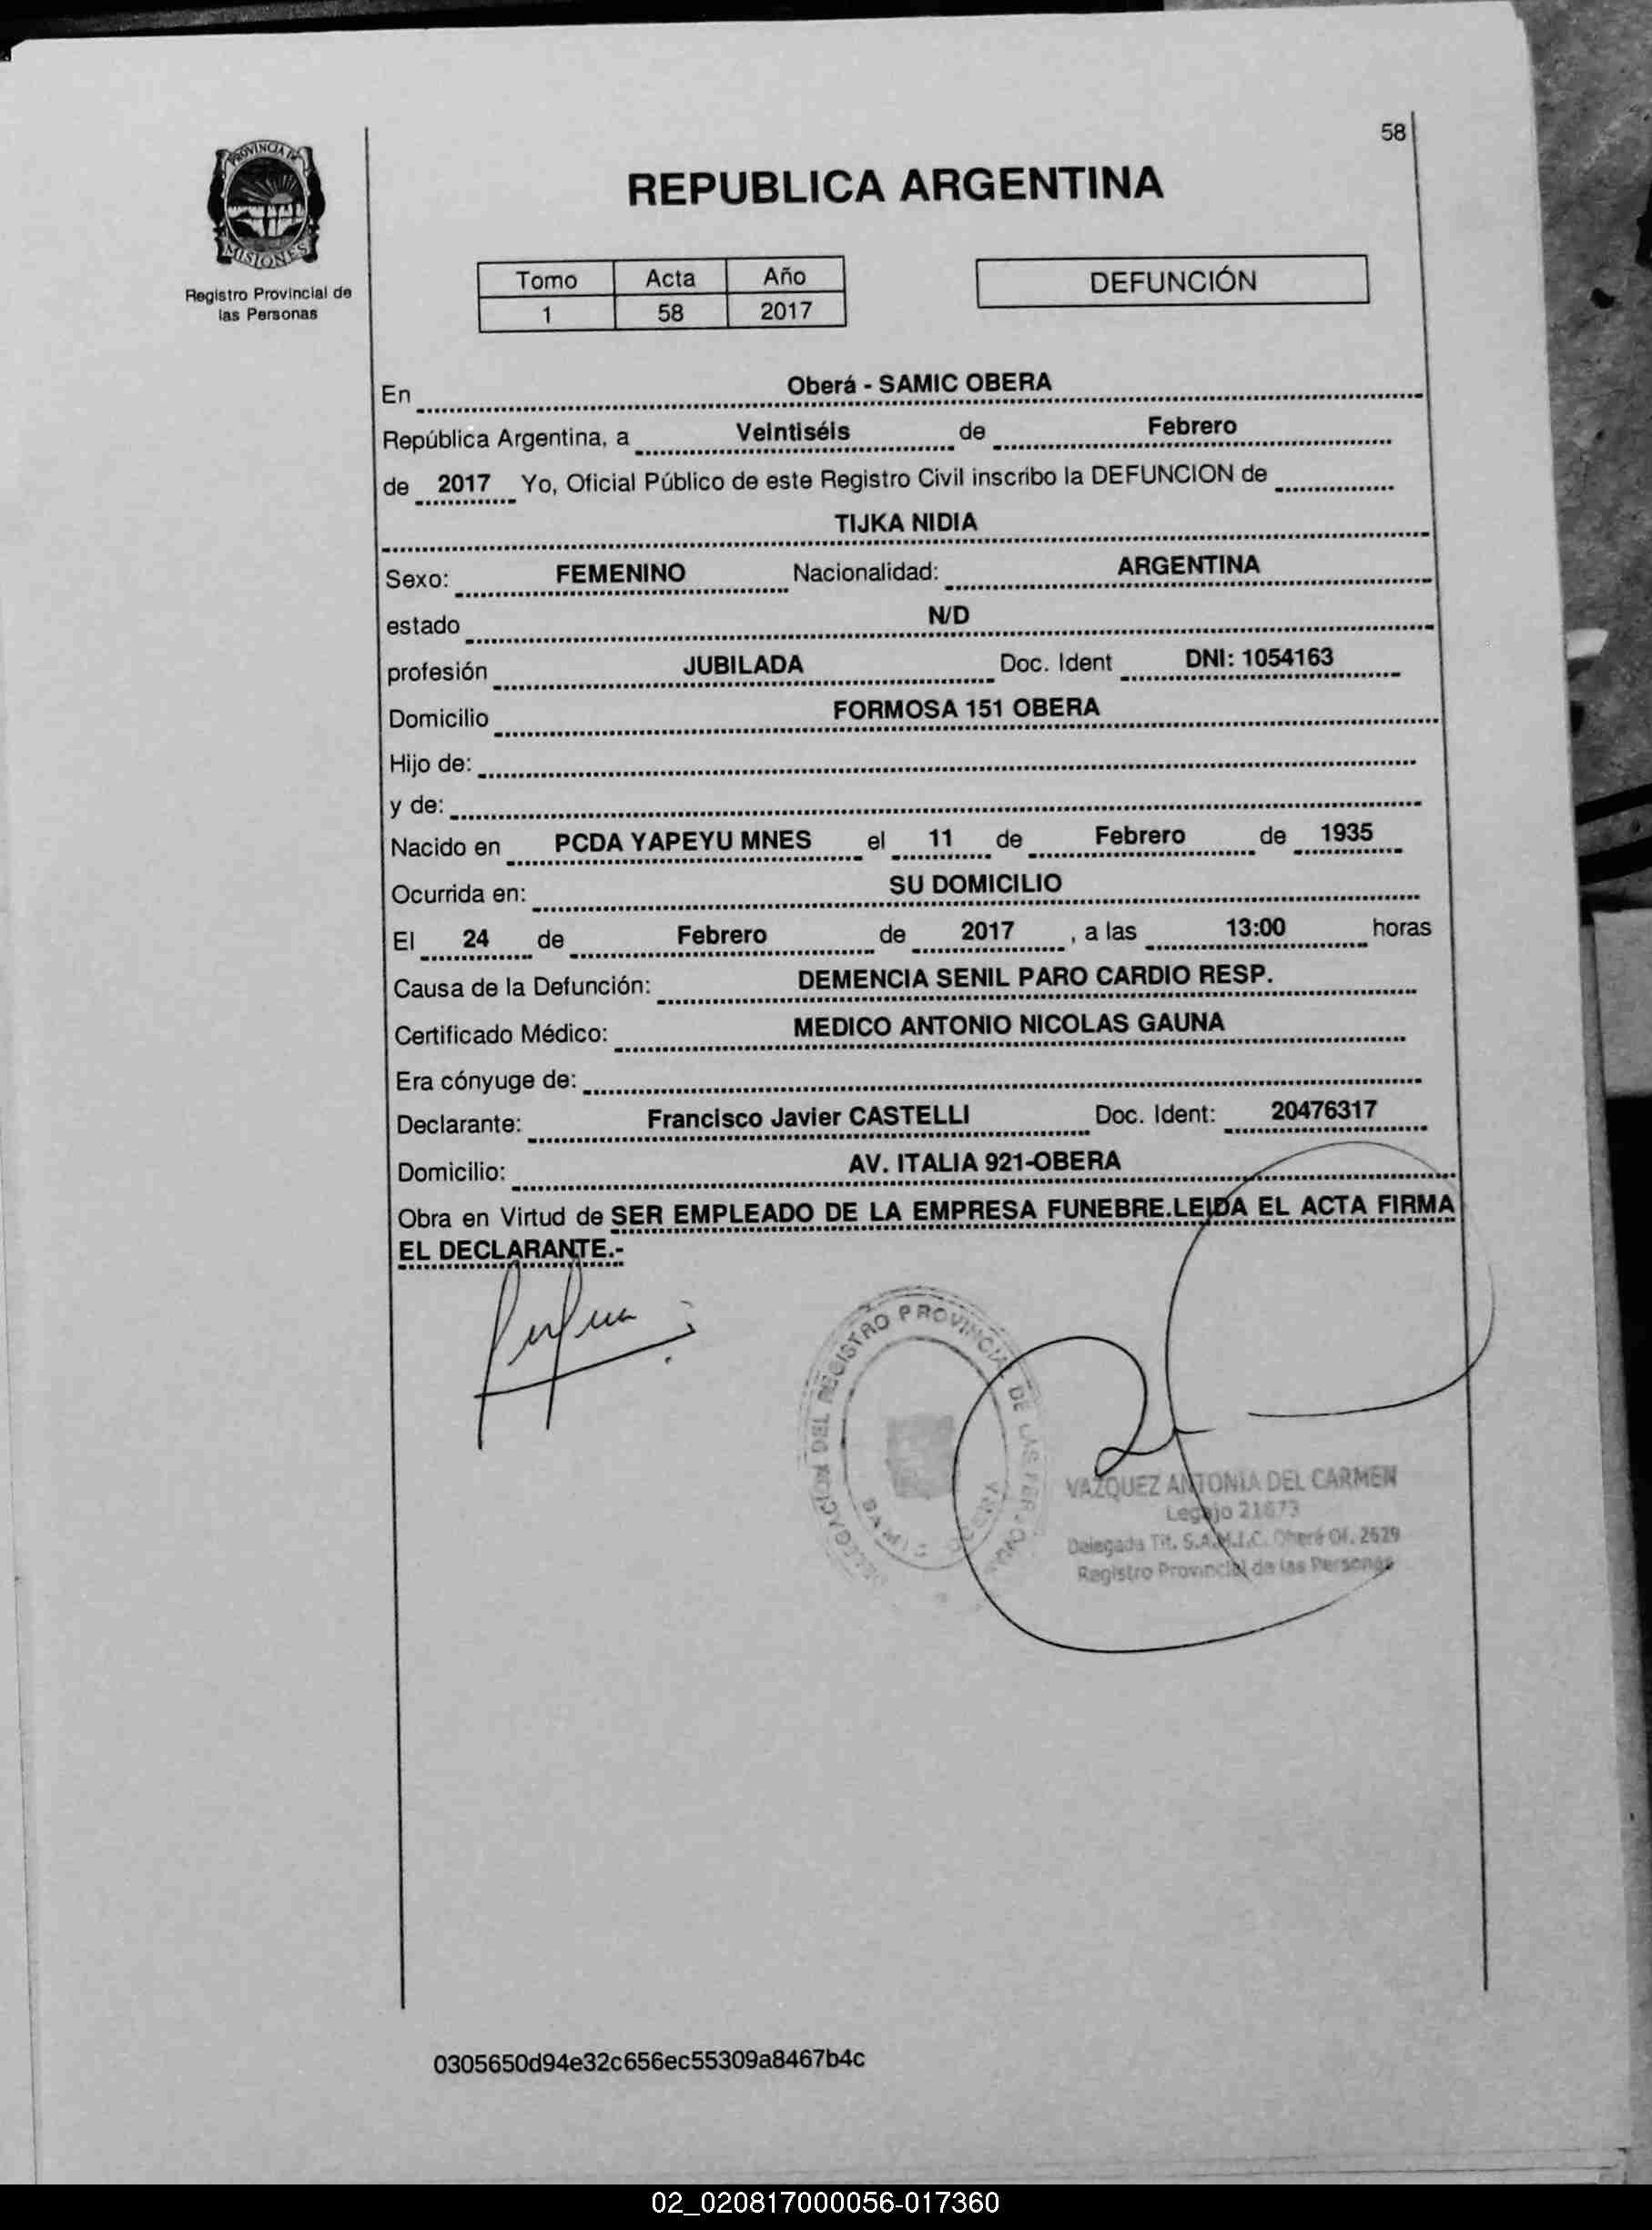 58
PROVINCIA DE
MISIONES
Registro Provincial de
las Personas
REPUBLICA ARGENTINA
Tomo Acta Año
1 58 2017
DEFUNCIÓN
En Oberá - SAMIC OBERA
República Argentina, a Veintiséis de Febrero
de 2017 Yo, Oficial Público de este Registro Civil inscribo la DEFUNCION de
TIJKA NIDIA
Sexo: FEMENINO Nacionalidad: ARGENTINA
estado N/D
profesión JUBILADA Doc. Ident DNI: 1054163
Domicilio FORMOSA 151 OBERA
Hijo de:
y de:
Nacido en PCDA YAPEYU MNES el 11 de Febrero de 1935
Ocurrida en: SU DOMICILIO
El 24 de Febrero de 2017 , a las 13:00 horas
Causa de la Defunción: DEMENCIA SENIL PARO CARDIO RESP.
Certificado Médico: MEDICO ANTONIO NICOLAS GAUNA
Era cónyuge de:
Declarante: Francisco Javier CASTELLI Doc. Ident: 20476317
Domicilio: AV. ITALIA 921-OBERA
Obra en Virtud de SER EMPLEADO DE LA EMPRESA FUNEBRE.LEIDA EL ACTA FIRMA
EL DECLARANTE.-
DELEGACION DEL REGISTRO PROVINCIAL DE LAS
VAZQUEZ ANTONIA DEL CARMEN
Legajo 21673
Delegada Tit. S.A.M.I.C. Oberá Of. 2629
Registro Provincial de las Personas
0305650d94e32c656ec55309a8467b4c
02_020817000056-017360